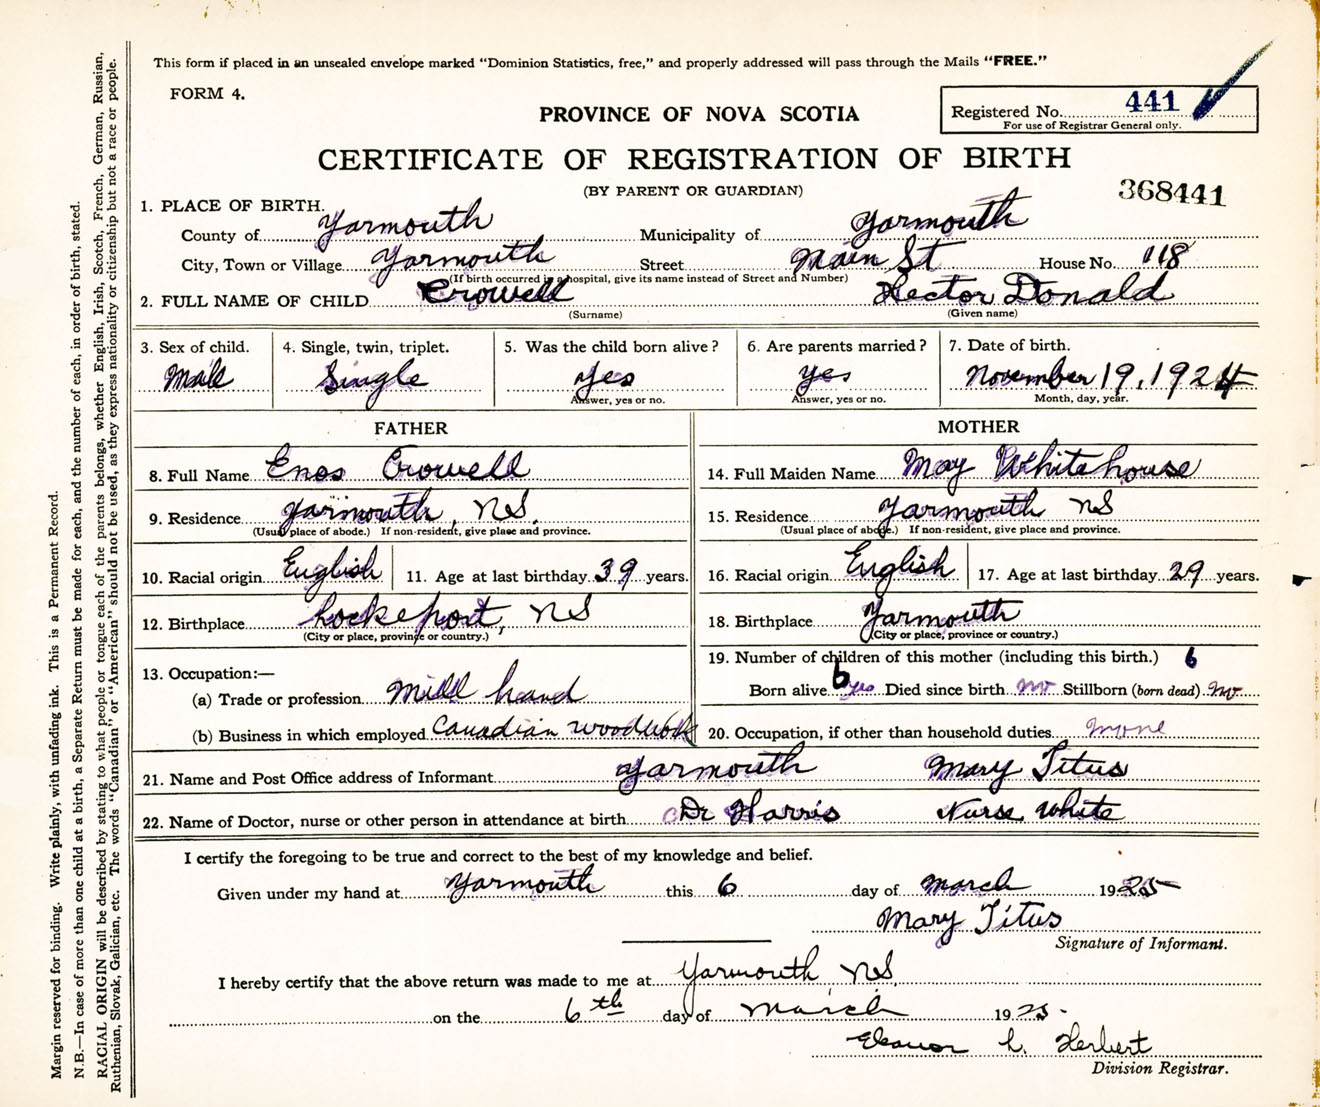 This form if placed in an unsealed envelope marked "Dominion Statistics, free," and properly addressed will pass through the Mails "FREE."
FORM 4.
PROVINCE OF NOVA SCOTIA
Registered No. 441
For use of Registrar General only.
CERTIFICATE OF REGISTRATION OF BIRTH
(BY PARENT OR GUARDIAN)
368441
1. PLACE OF BIRTH.
County of Yarmouth Municipality of Yarmouth
City, Town or Village Yarmouth Street Main St House No. 118
(If birth occurred in a hospital, give its name instead of Street and Number)
2. FULL NAME OF CHILD Crowell Hector Donald
(Surname) (Given name)
3. Sex of child. 4. Single, twin, triplet. 5. Was the child born alive? 6. Are parents married? 7. Date of birth.
Male Single Yes yes November 19, 1924
Answer, yes or no. Answer, yes or no. Month, day, year.
FATHER MOTHER
8. Full Name Enos Crowell 14. Full Maiden Name May Whitehouse
9. Residence Yarmouth, NS. 15. Residence Yarmouth NS
(Usual place of abode.) If non-resident, give place and province. (Usual place of abode.) If non-resident, give place and province.
10. Racial origin English 11. Age at last birthday 39 years. 16. Racial origin English 17. Age at last birthday 29 years.
12. Birthplace Lockeport, NS 18. Birthplace Yarmouth
(City or place, province or country.) (City or place, province or country.)
19. Number of children of this mother (including this birth.) 6
13. Occupation:—
(a) Trade or profession Mill hand Born alive 6 yes Died since birth no Stillborn (born dead) no
(b) Business in which employed Canadian woodwork 20. Occupation, if other than household duties none
21. Name and Post Office address of Informant Yarmouth Mary Titus
22. Name of Doctor, nurse or other person in attendance at birth Dr Harris Nurse White
I certify the foregoing to be true and correct to the best of my knowledge and belief.
Given under my hand at Yarmouth this 6 day of March 1925
Mary Titus
Signature of Informant.
I hereby certify that the above return was made to me at Yarmouth NS,
on the 6th day of March 1925.
Eleanor L. Herbert
Division Registrar.
Margin reserved for binding. Write plainly, with unfading ink. This is a Permanent Record.
N.B.—In case of more than one child at a birth, a Separate Return must be made for each, and the number of each, in order of birth, stated.
RACIAL ORIGIN will be described by stating to what people or tongue each of the parents belongs, whether English, Irish, Scotch, French, German, Russian,
Ruthenian, Slovak, Galician, etc. The words "Canadian" or "American" should not be used, as they express nationality or citizenship but not a race or people.